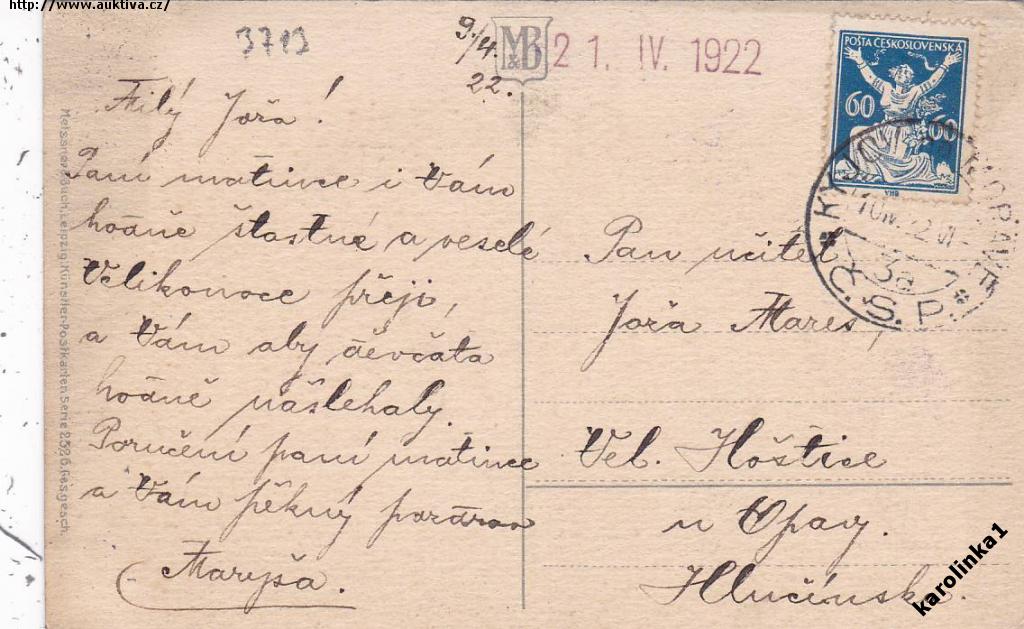 http://www.auktiva.cz/
3713
9/4.
22.
M&B
21. IV. 1922
POŠTA ČESKOSLOVENSKÁ
60
60
VHB
KYJOV
10.IV.22.VI-
3a
Č.S.P.
Milý Jožа!
Paní matince i Vám
hodně šťastné a veselé
Velikonoce přeji,
a Vám aby děvčata
hodně našlehaly.
Poručení paní matince
a Vám pěkný pozdrav
Maryša.
Pan učitel
Joža Mareš,
Vel. Hoštice
u Opavy.
Hlučínsko.
Meissner & Buch, Leipzig. Künstler-Postkarten Serie 2526. Ges. gesch.
karolinka1